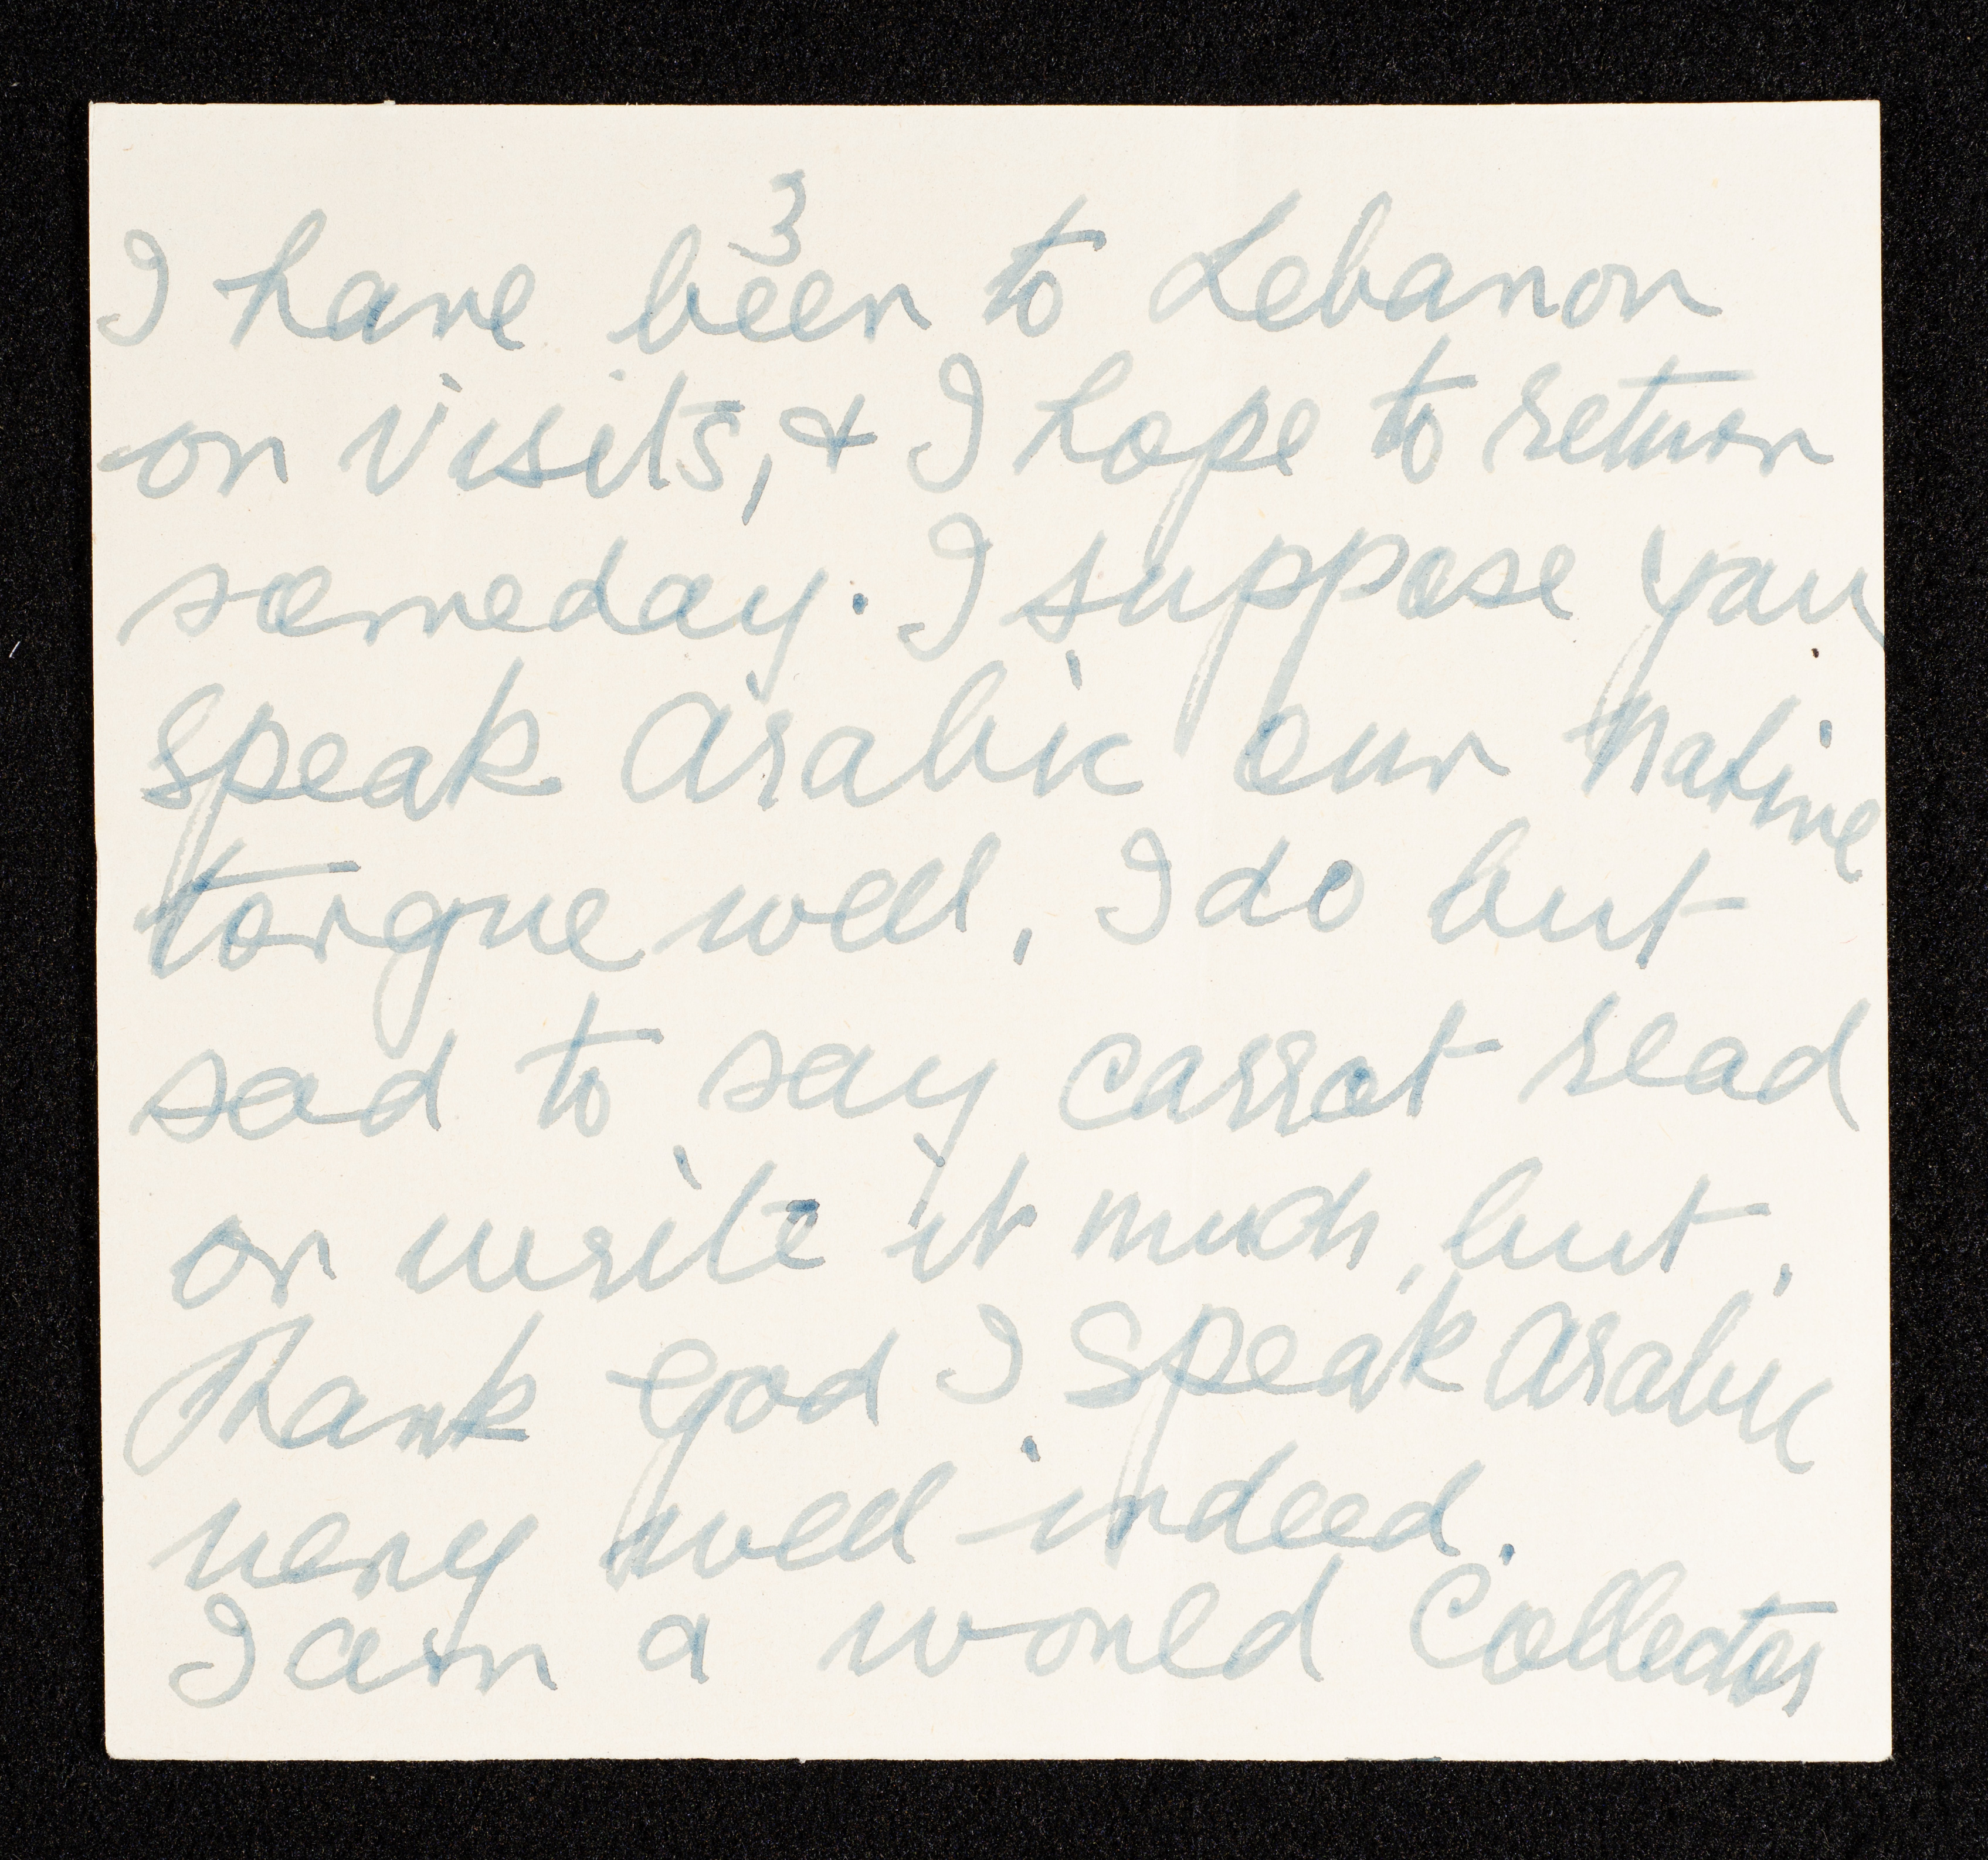 3
I have been to Lebanon
on visits, & I hope to return
someday. I suppose you
speak Arabic our native
tongue well, I do but
sad to say cannot read
or write it much, but,
Thank God I speak Arabic
very well indeed.
I am a world Collector